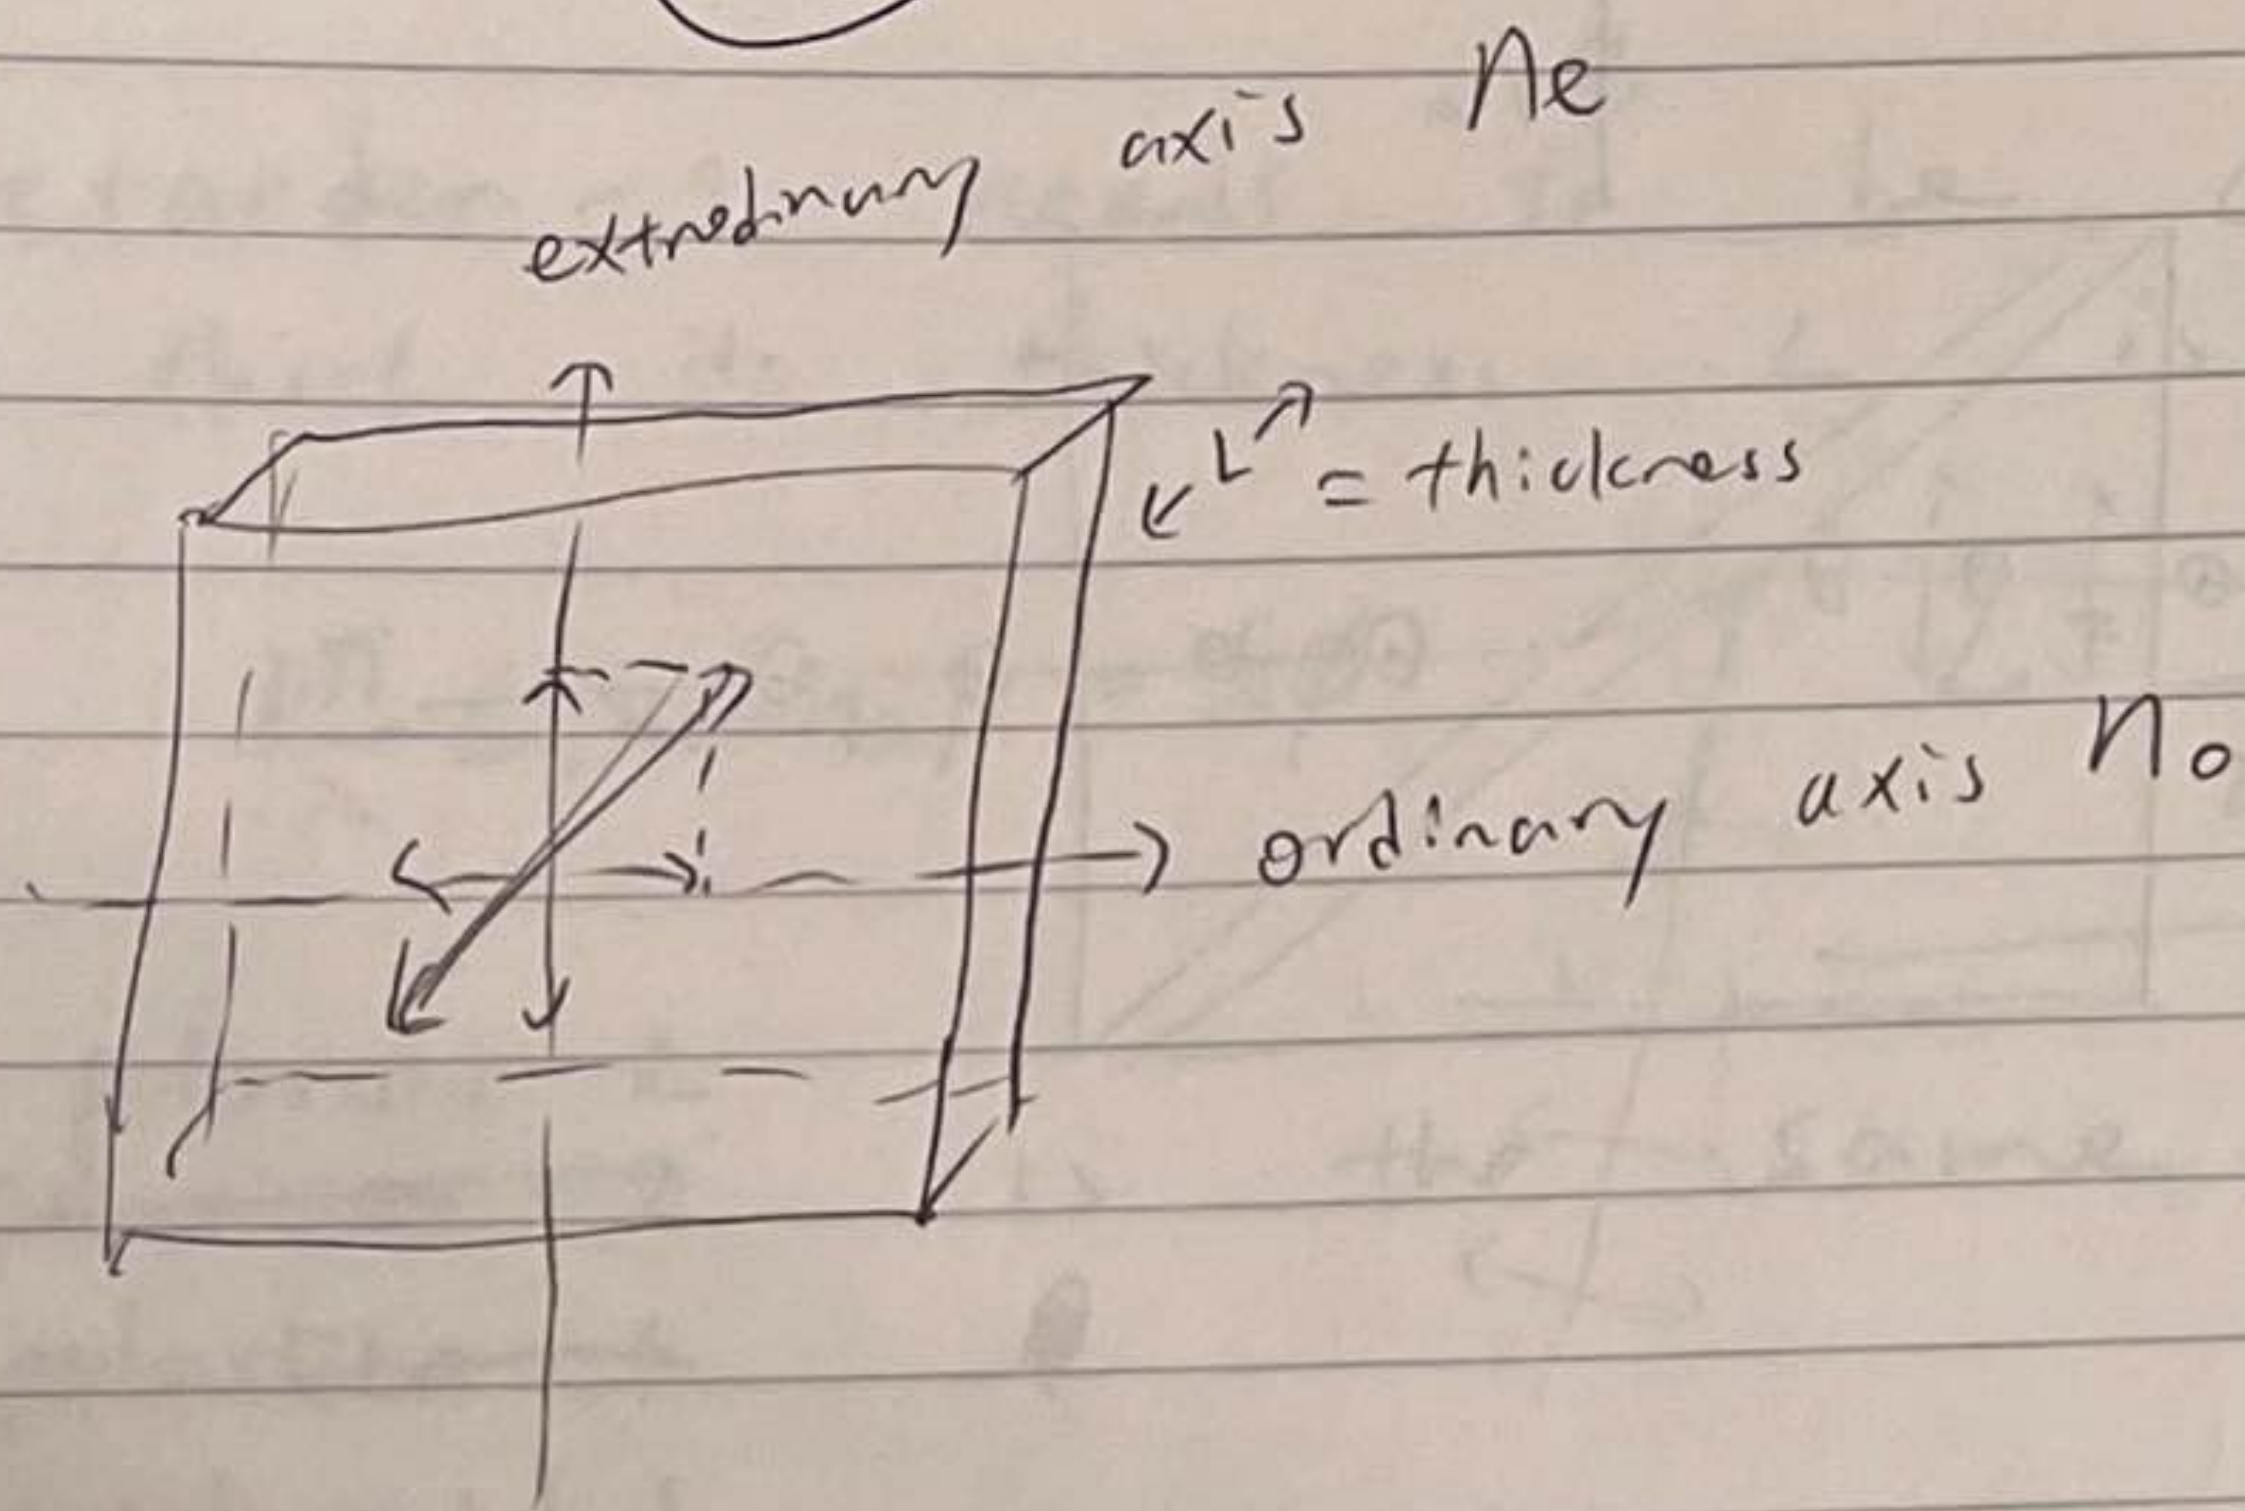 extrodinary axis ne
L = thickness
ordinary axis no